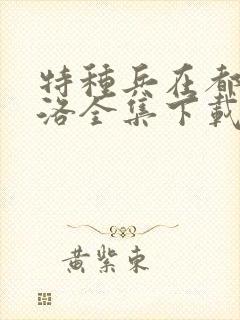 特種兵在都
洛全集下載
黃紫東